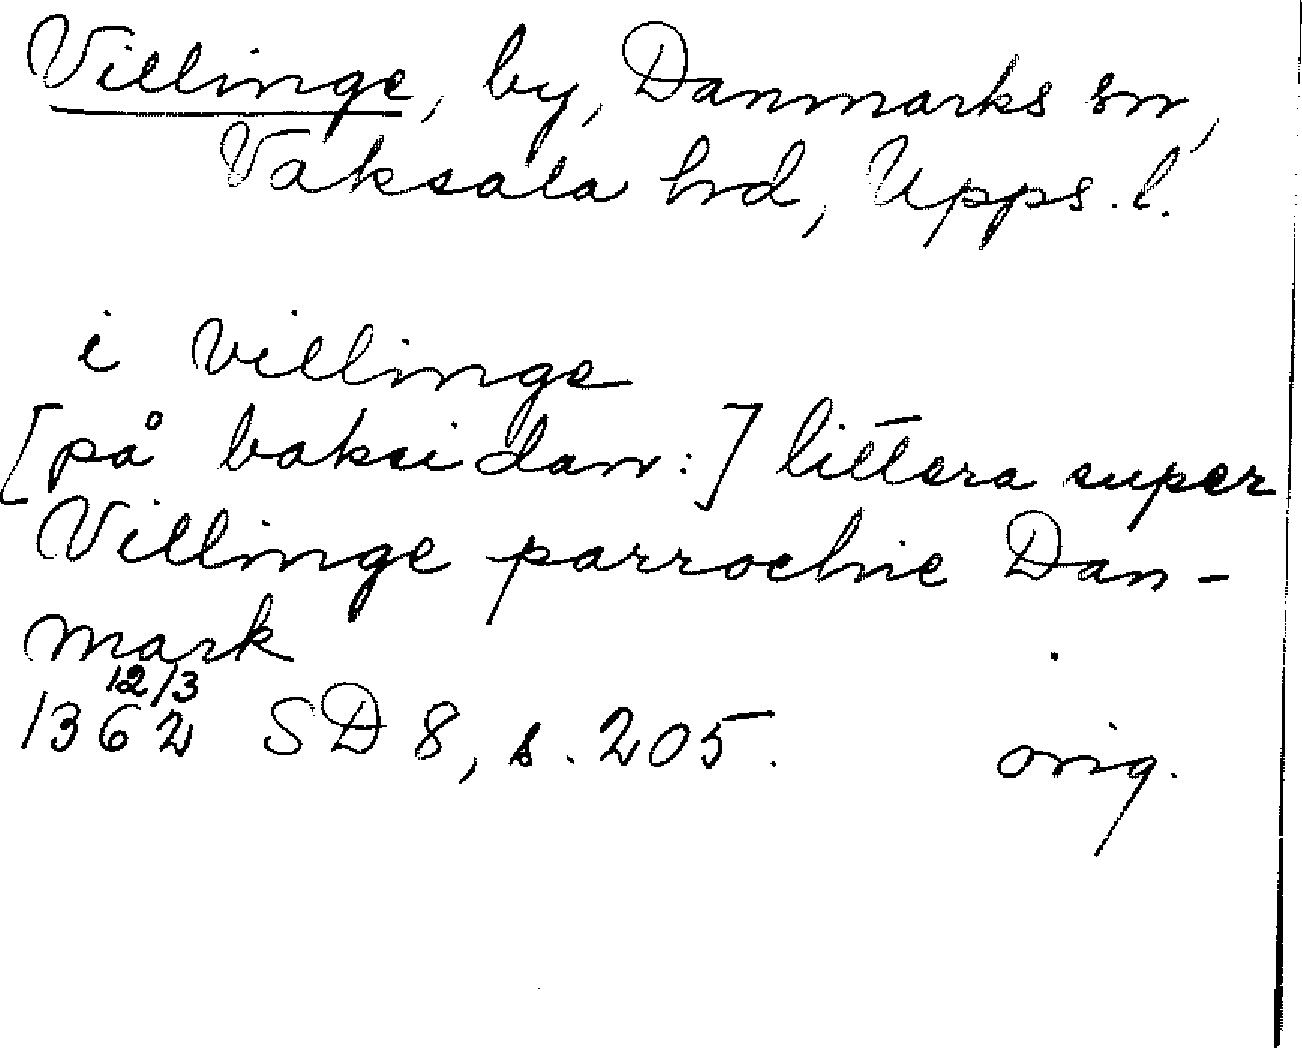 Villinge, by, Danmarks sn,
Vaksala hd, Upps. l.
i villinge
[på baksidan:] littera super
Villinge parrochie Dan-
mark
12/3
1362 SD 8, s. 205. orig.